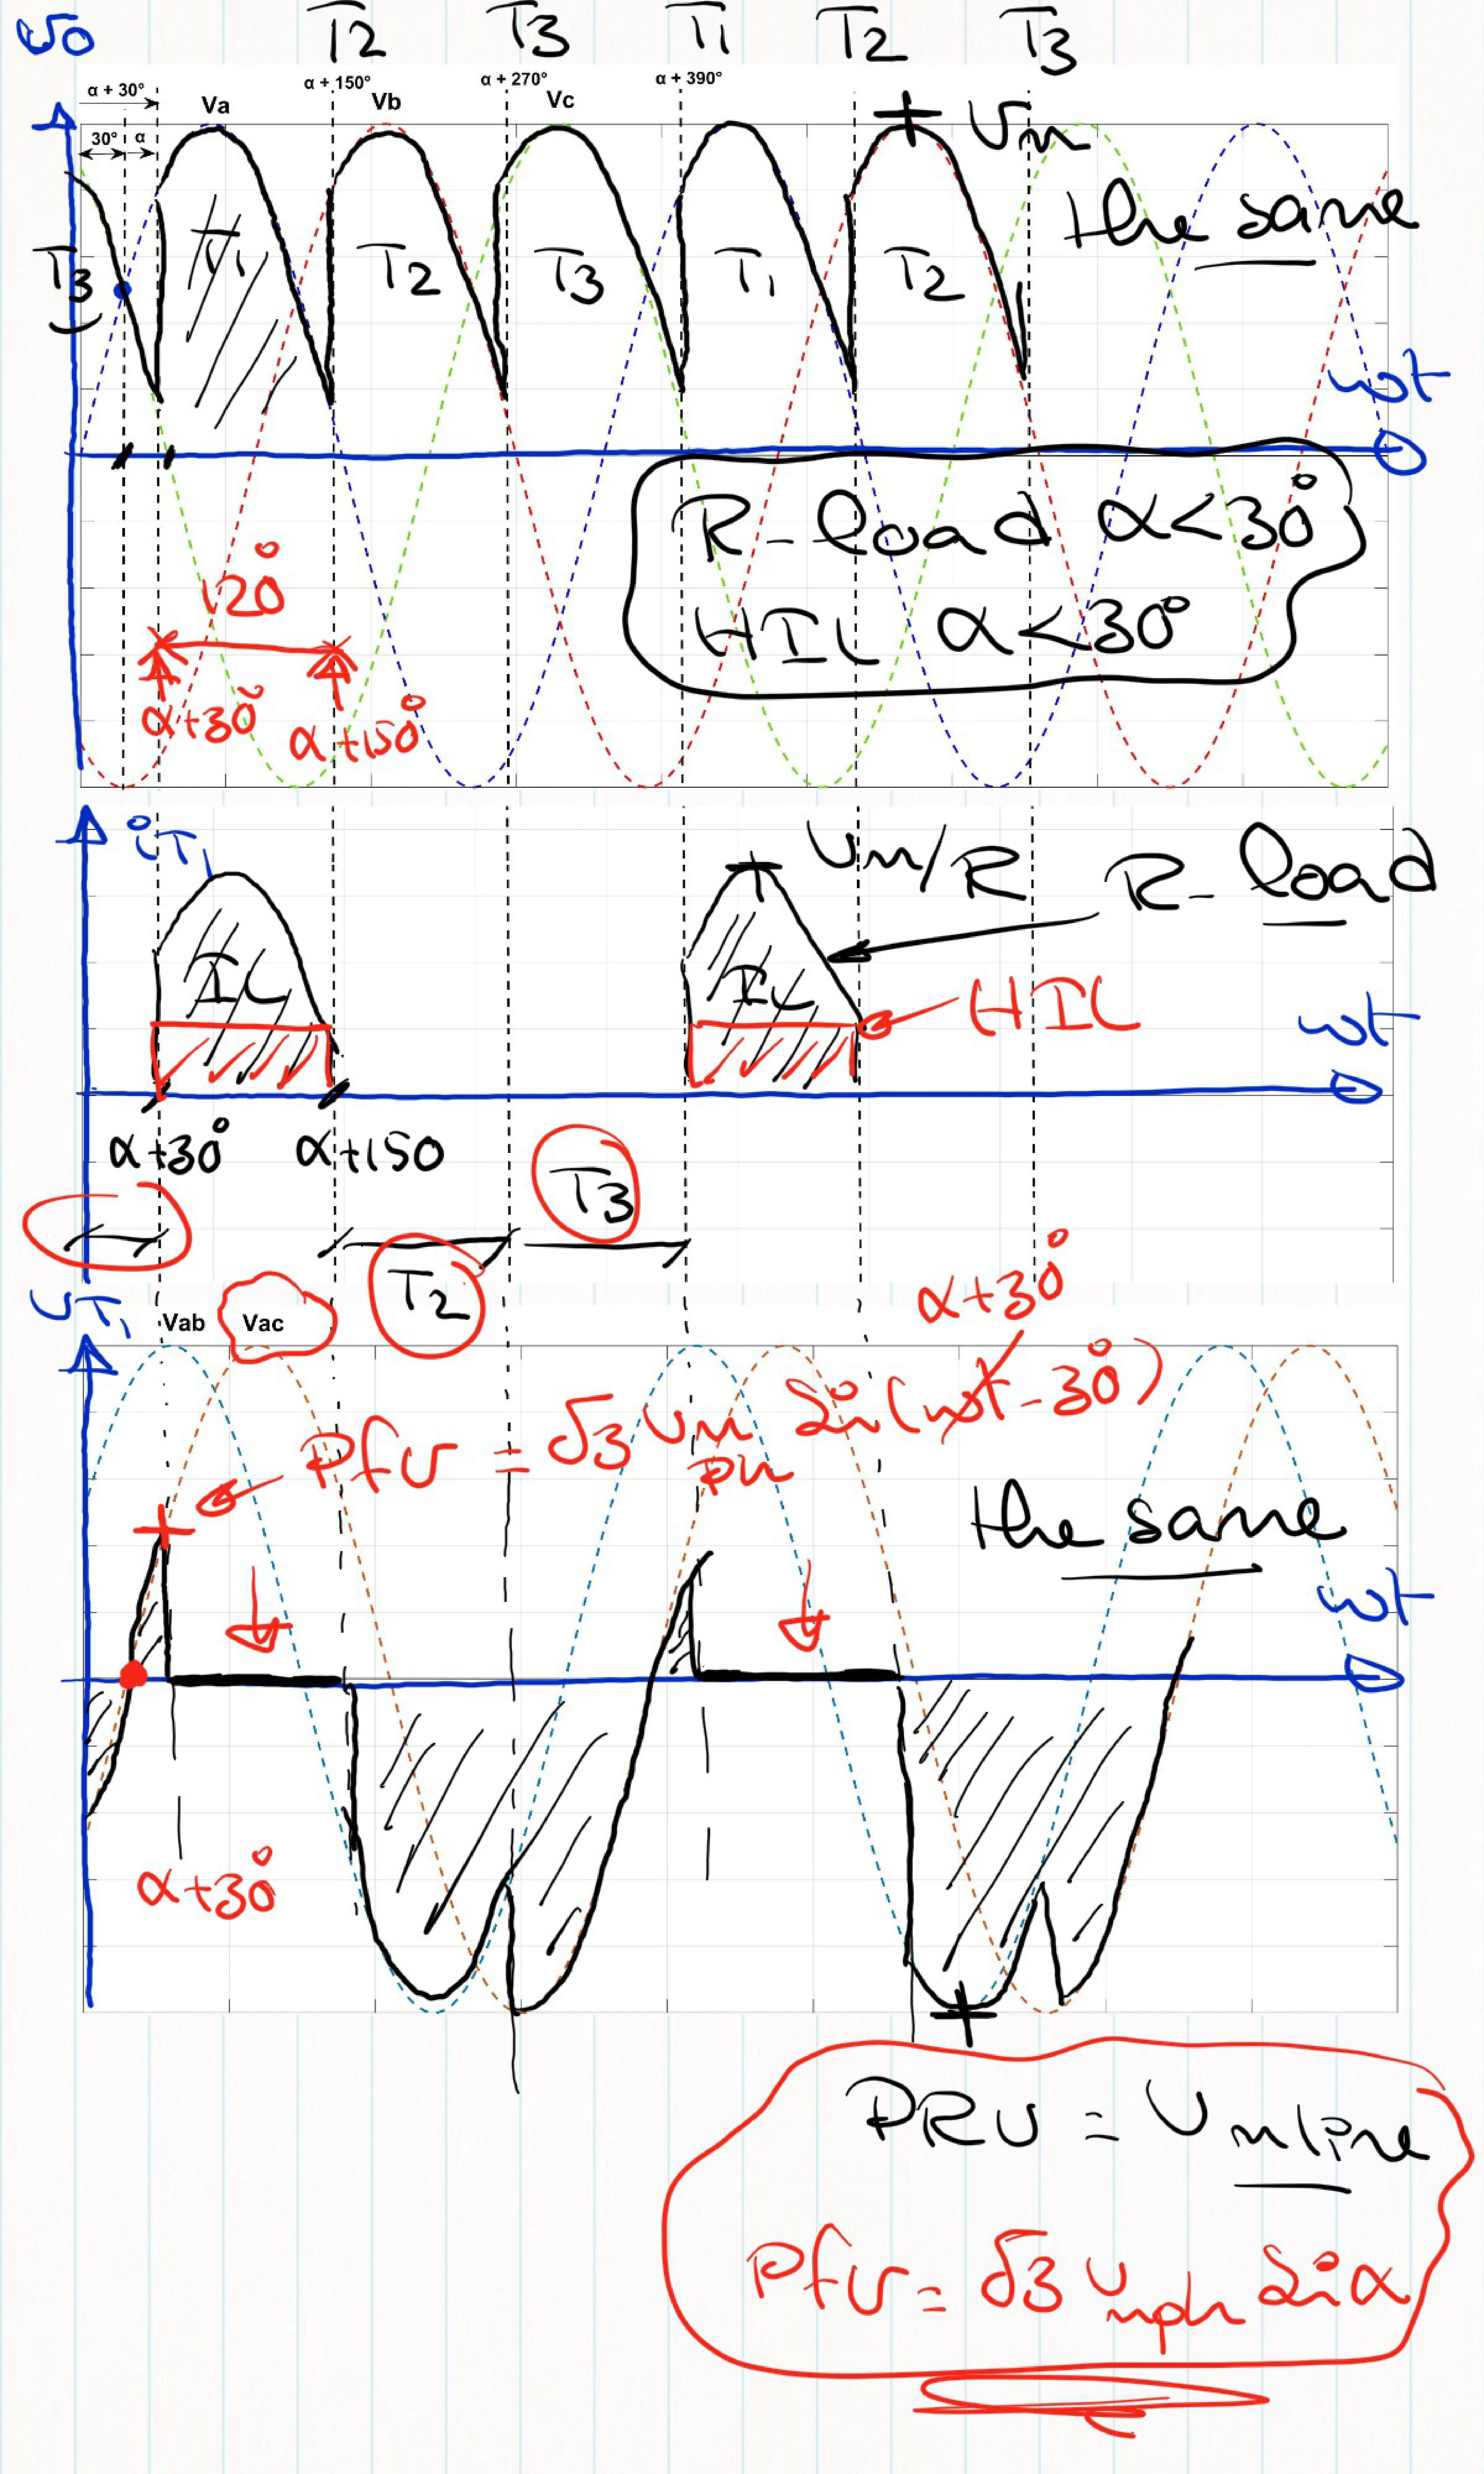 υo T2 T3 T1 T2 T3
α + 30° α + 150° α + 270° α + 390°
Va Vb Vc
30° α
+ Vm
the same
T3 T1 T2 T3 T1 T2
ωt
R-load α<30°
HIL α<30°
120°
α+30° α+150°
iT1
Vm/R R-load
IL IL
HIL
ωt
α+30° α+150
T3
T2
α+30°
VT1
Vab Vac
Pfv = √3 Vm ph Sin(ωt-30°)
the same
ωt
α+30°
PRV = Vmline
Pfv = √3 Vmph Sin α